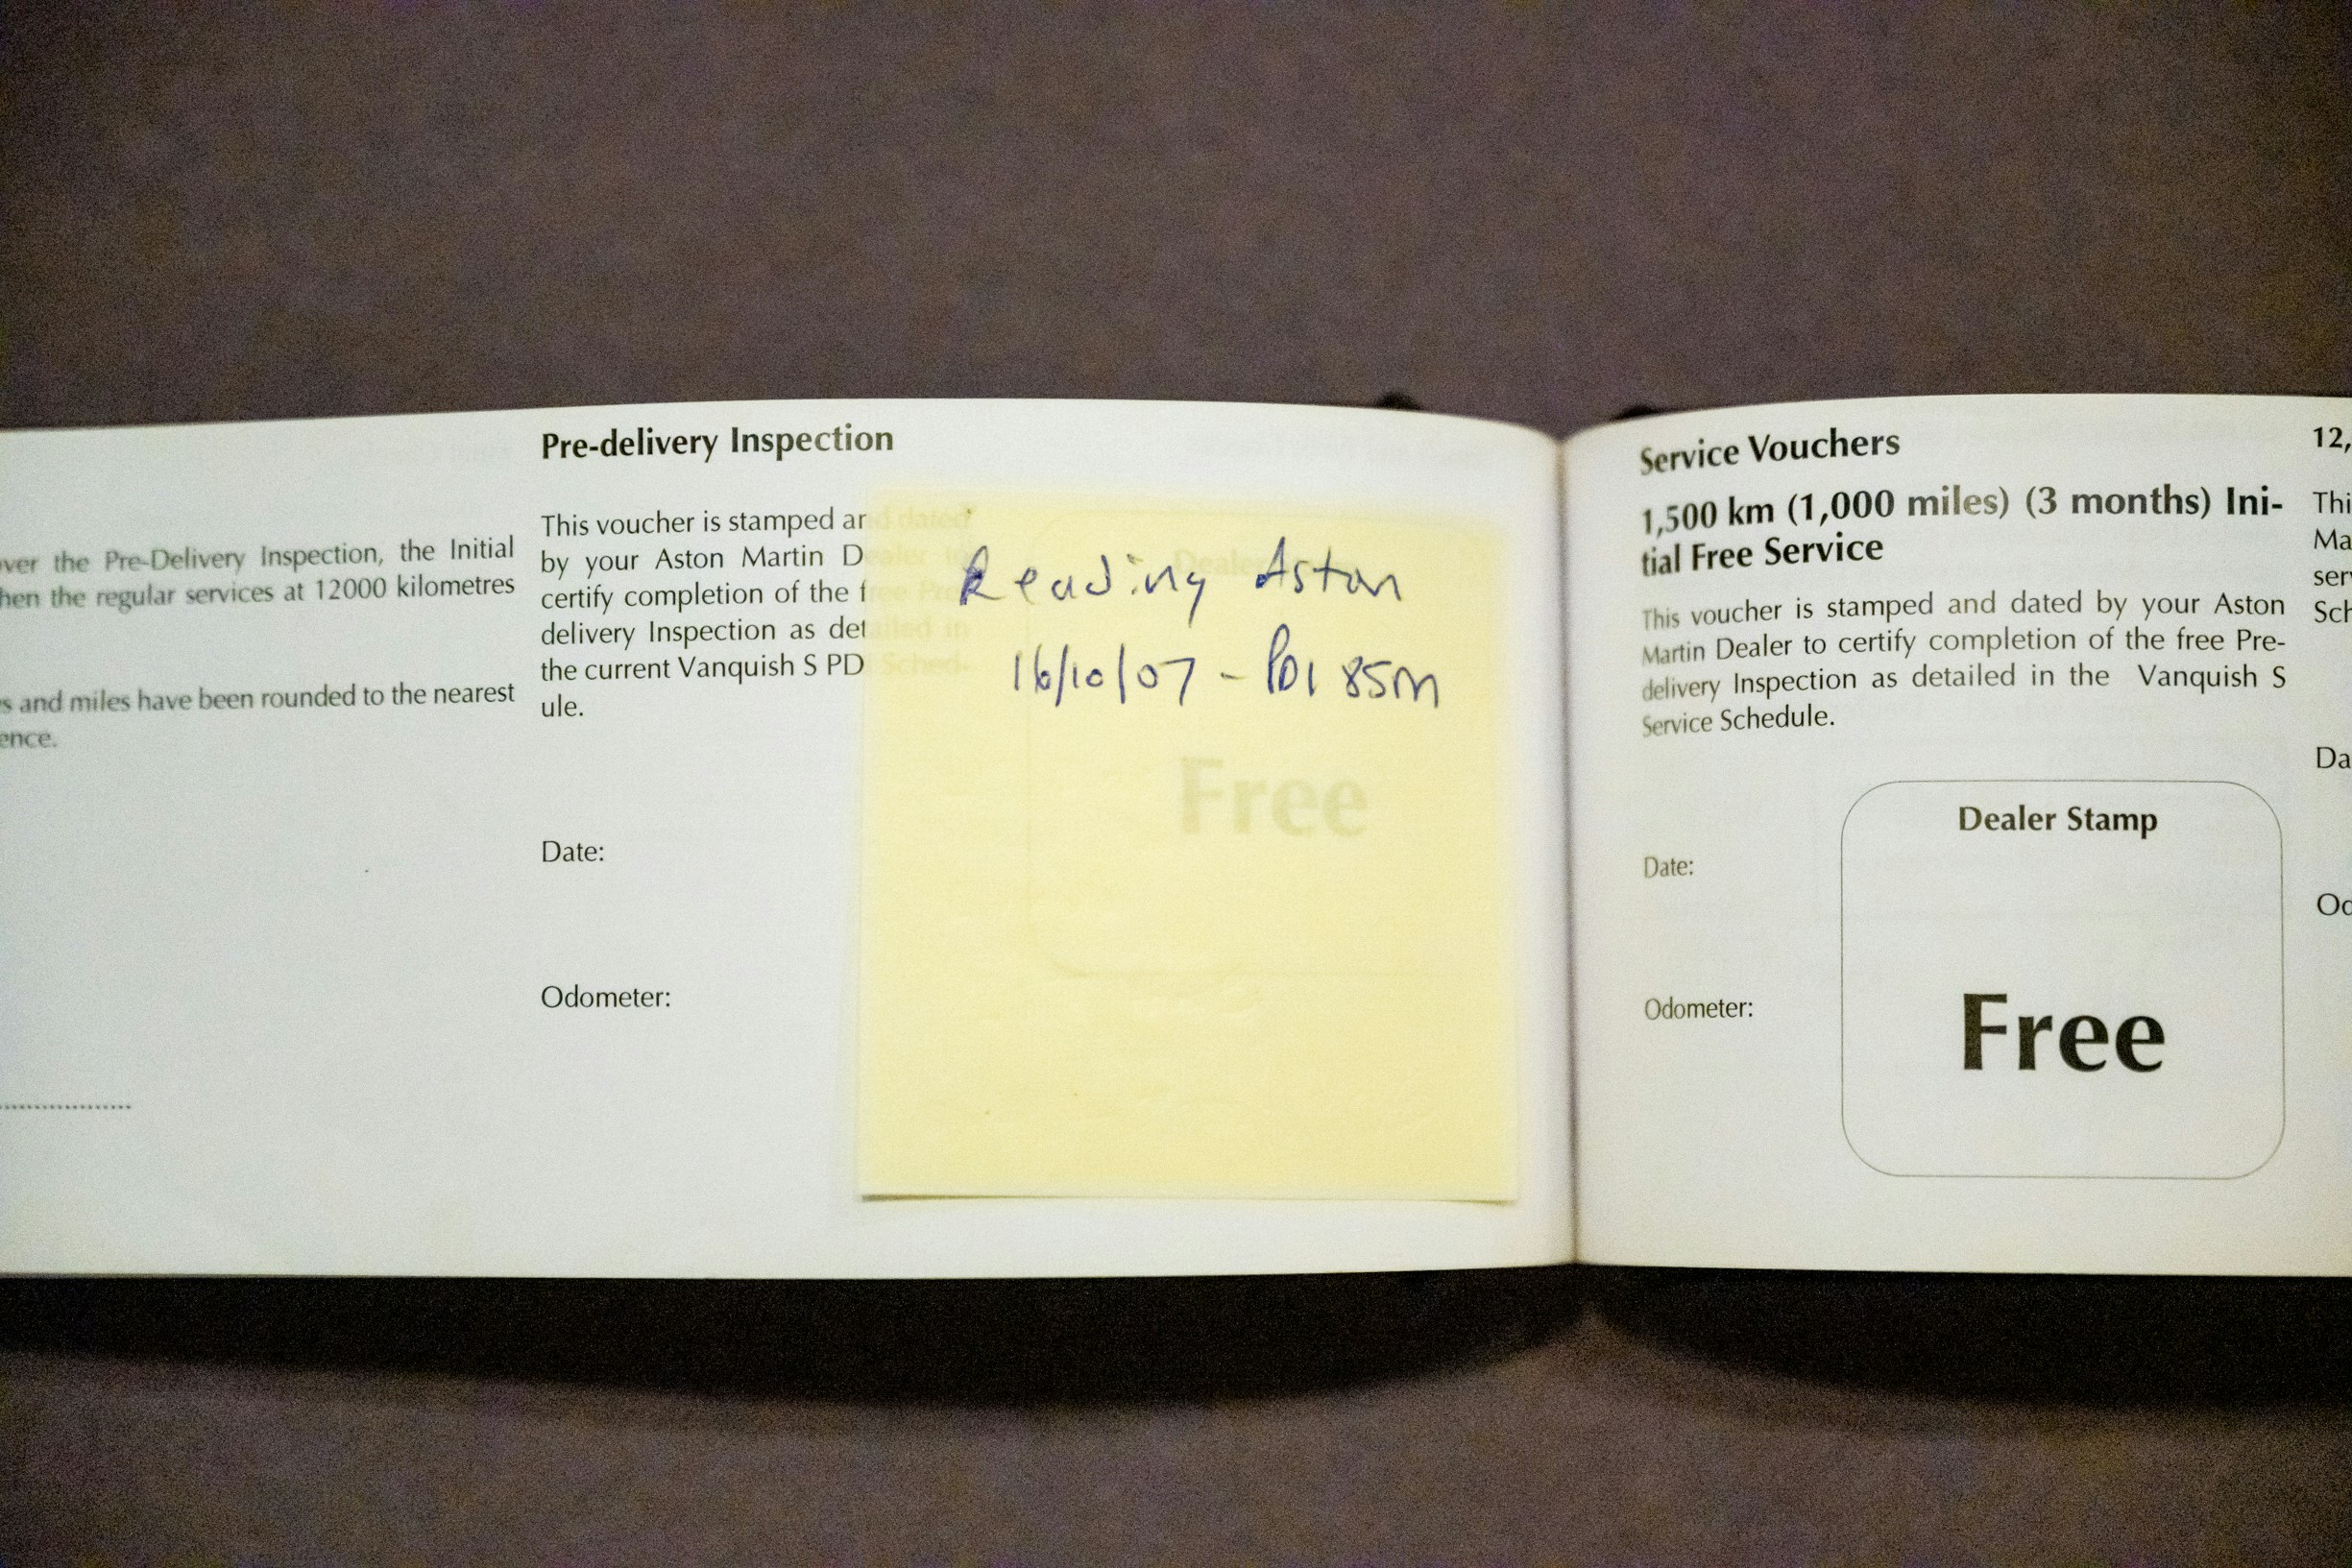 ver the Pre-Delivery Inspection, the Initial
hen the regular services at 12000 kilometres
s and miles have been rounded to the nearest
ence.
Pre-delivery Inspection
This voucher is stamped and dated
by your Aston Martin Dealer to
certify completion of the free Pre-
delivery Inspection as detailed in
the current Vanquish S PDI Sched-
ule.
Date:
Odometer:
Reading Aston
16/10/07 - PDI 85m
Dealer
Free
Service Vouchers
1,500 km (1,000 miles) (3 months) Ini-
tial Free Service
This voucher is stamped and dated by your Aston
Martin Dealer to certify completion of the free Pre-
delivery Inspection as detailed in the Vanquish S
Service Schedule.
Date:
Odometer:
Dealer Stamp
Free
12,
Thi
Ma
ser
Sch
Da
Od